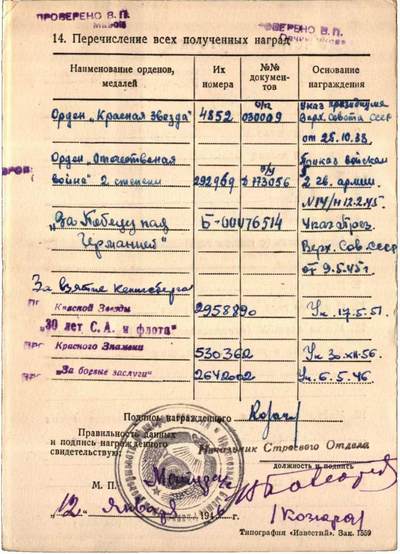 ПРОВЕРЕНО В.П.
ПРОВЕРЕНО В.П.
14. Перечисление всех полученных наград
Наименование орденов, медалей
Их номера
№№ документов
Основание награждения
Орден „Красная Звезда"
4852
о/к
030009
Указ президиума
Верх. Совета СССР
от 25.10.38
Орден „Отечественая
Война" 2 степени
292969
773056
Приказ войскам
2 гв. армии
N14/н 12.2.45
„За Победу над
Германией"
Б-00476514
Указ През.
Верх. Сов. СССР
от 9.5.45г.
За взятие Кенигсберга
Красной Звезды
2958890
Ук. 17.5.51.
„30 лет С.А. и флота"
Красного Знамени
530362
Ук 30.XII.56.
„За боевые заслуги"
2642002
Ук. 6.5.46
Подпись награжденного
Правильность данных
и подпись награжденного
свидетельствую:
Начальник Строевого Отдела
должность и подпись
М. П.
"12" Января 194 г.
Типография «Известий». Зак. 1559